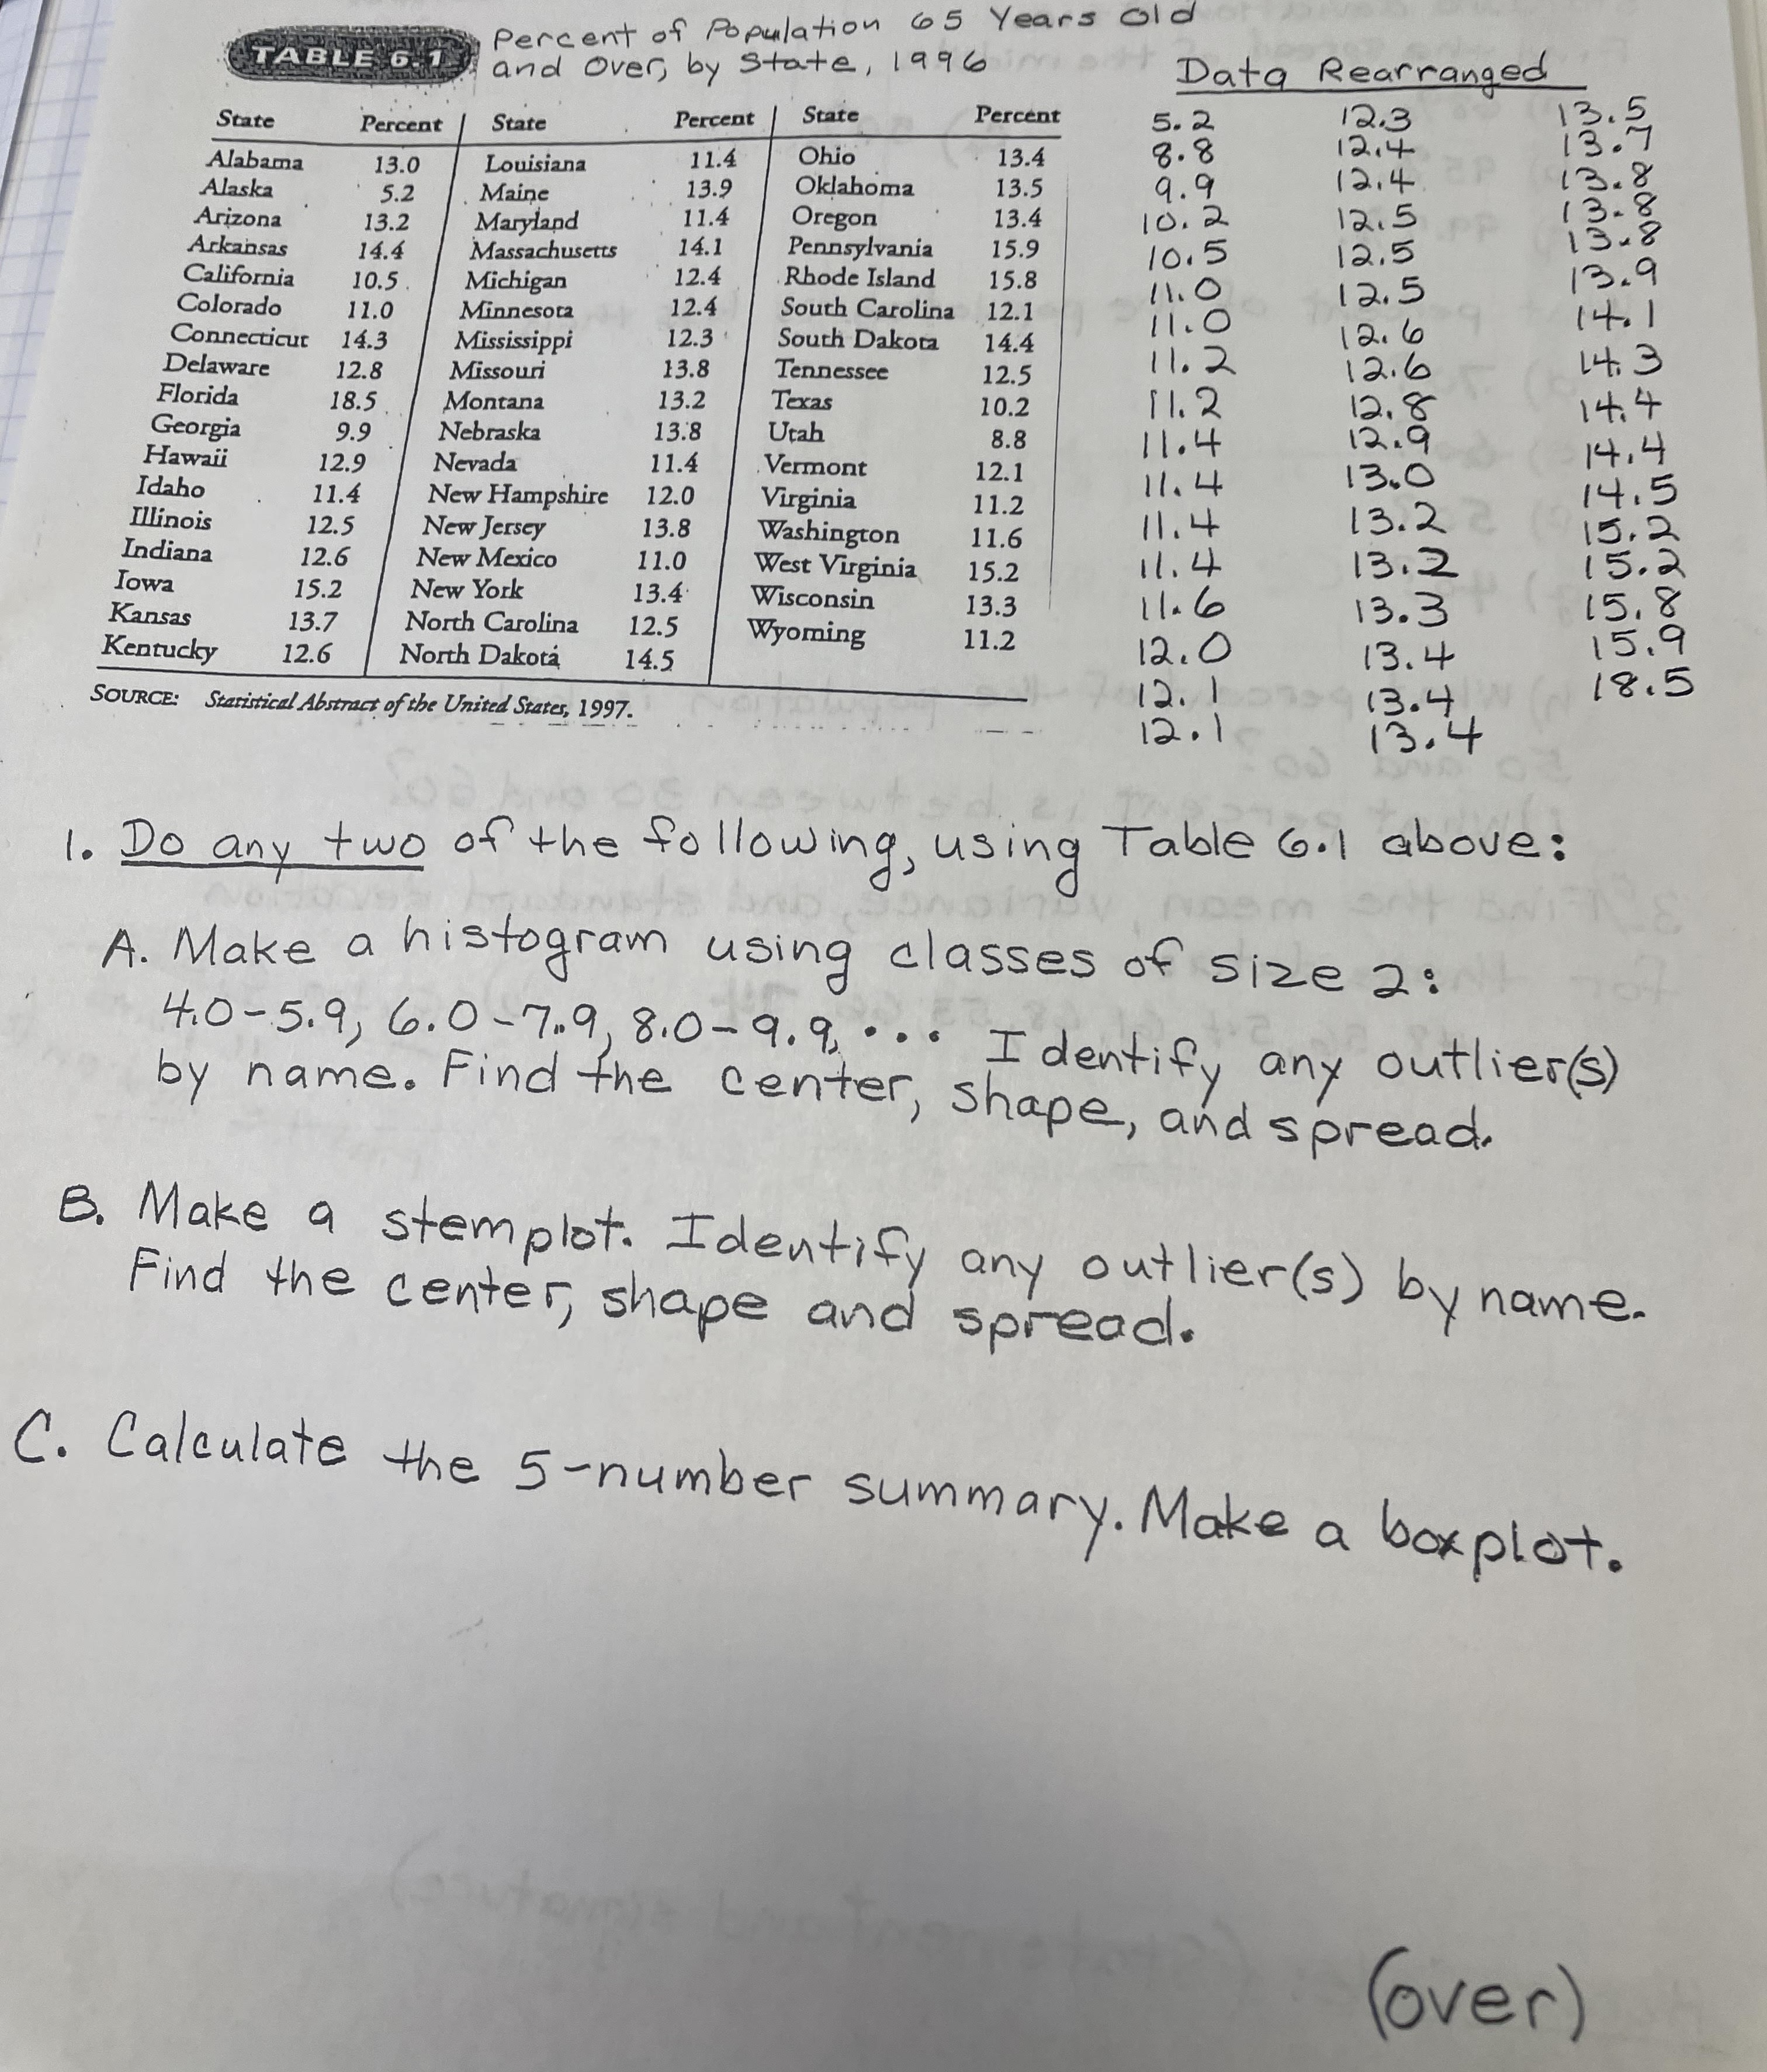 Percent of Population 65 Years Old
TABLE 6.1 and Over, by State, 1996
Data Rearranged
State Percent State Percent State Percent
Alabama 13.0 Louisiana 11.4 Ohio 13.4
Alaska 5.2 Maine 13.9 Oklahoma 13.5
Arizona 13.2 Maryland 11.4 Oregon 13.4
Arkansas 14.4 Massachusetts 14.1 Pennsylvania 15.9
California 10.5 Michigan 12.4 Rhode Island 15.8
Colorado 11.0 Minnesota 12.4 South Carolina 12.1
Connecticut 14.3 Mississippi 12.3 South Dakota 14.4
Delaware 12.8 Missouri 13.8 Tennessee 12.5
Florida 18.5 Montana 13.2 Texas 10.2
Georgia 9.9 Nebraska 13.8 Utah 8.8
Hawaii 12.9 Nevada 11.4 Vermont 12.1
Idaho 11.4 New Hampshire 12.0 Virginia 11.2
Illinois 12.5 New Jersey 13.8 Washington 11.6
Indiana 12.6 New Mexico 11.0 West Virginia 15.2
Iowa 15.2 New York 13.4 Wisconsin 13.3
Kansas 13.7 North Carolina 12.5 Wyoming 11.2
Kentucky 12.6 North Dakota 14.5
SOURCE: Statistical Abstract of the United States, 1997.
5.2 12.3 13.5
8.8 12.4 13.7
9.9 12.4 13.8
10.2 12.5 13.8
10.5 12.5 13.8
11.0 12.5 13.9
11.0 12.6 14.1
11.2 12.6 14.3
11.2 12.8 14.4
11.4 12.9 14.4
11.4 13.0 14.5
11.4 13.2 15.2
11.4 13.2 15.2
11.6 13.3 15.8
12.0 13.4 15.9
12.1 13.4 18.5
12.1 13.4
1. Do any two of the following, using Table 6.1 above:
A. Make a histogram using classes of size 2:
4.0-5.9, 6.0-7.9, 8.0-9.9, ... Identify any outlier(s)
by name. Find the center, shape, and spread.
B. Make a stemplot. Identify any outlier(s) by name.
Find the center, shape and spread.
C. Calculate the 5-number summary. Make a boxplot.
(over)